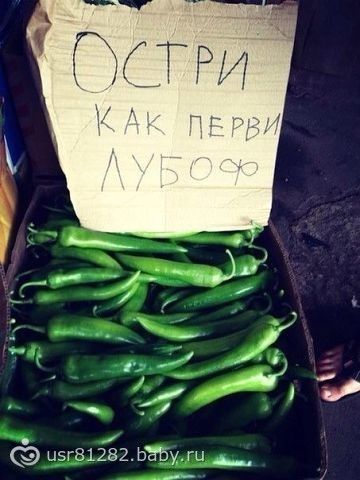 ОСТРИ
КАК ПЕРВИ
ЛУБОФ
usr81282.baby.ru